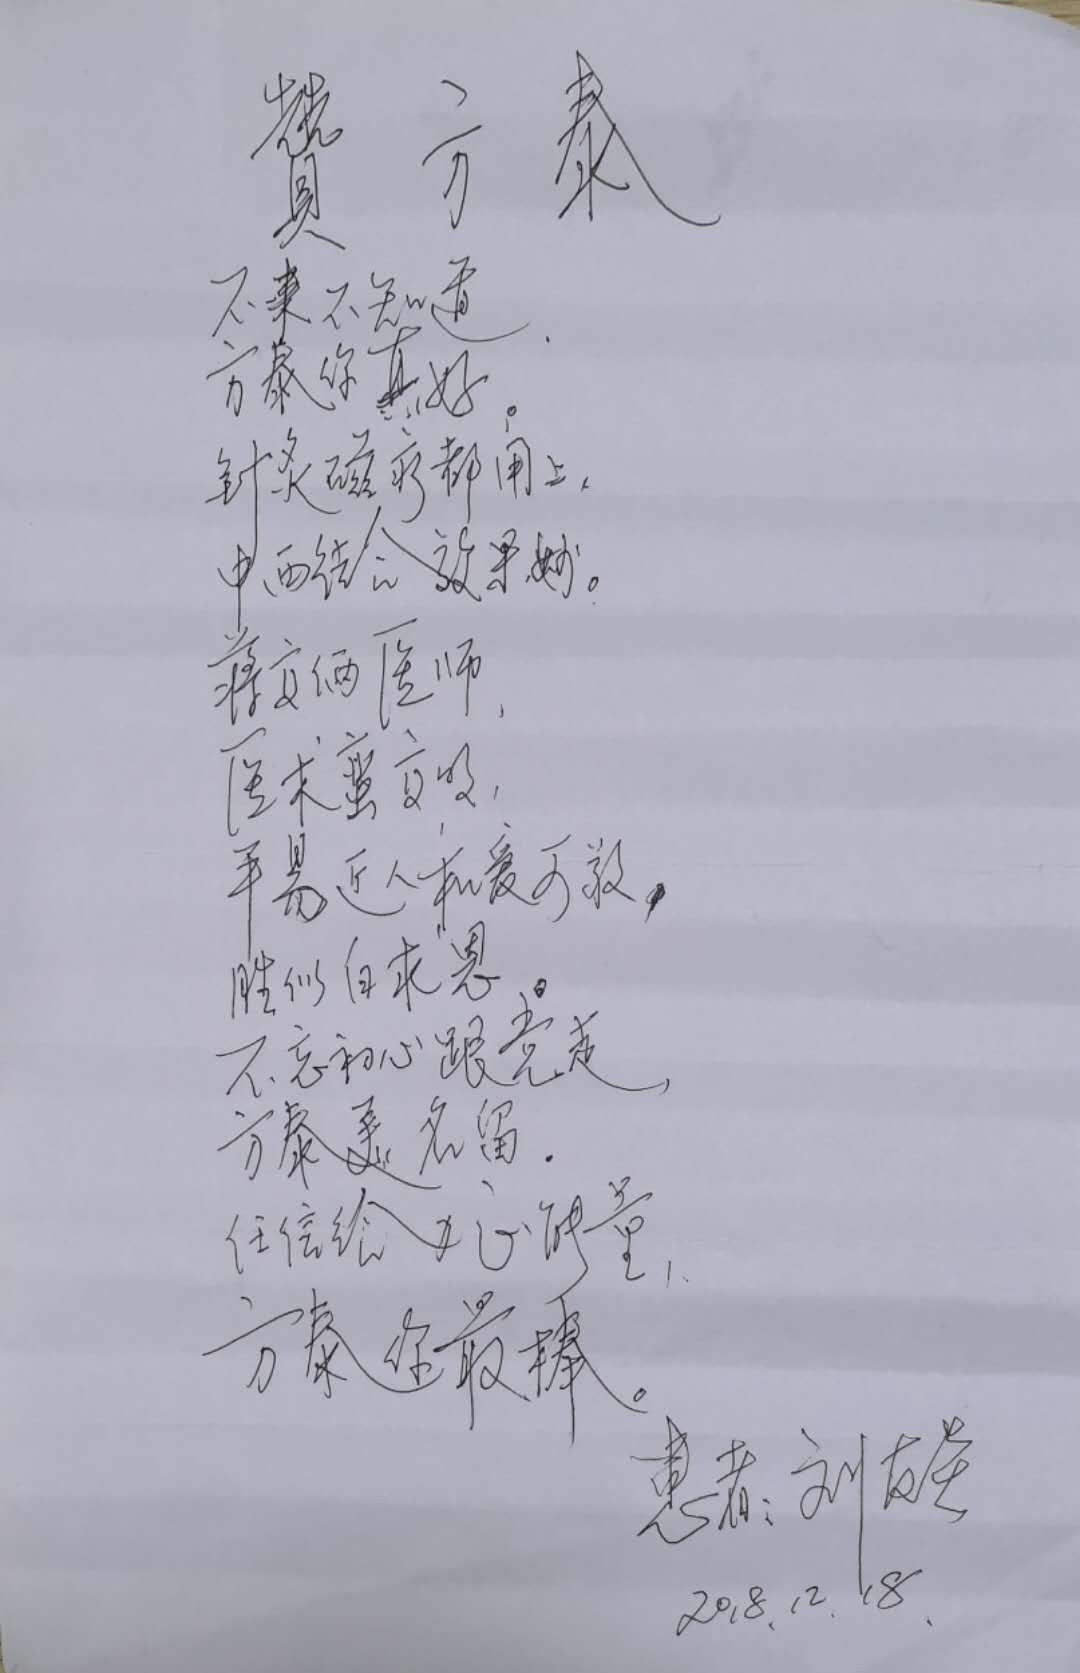 赞方泰
不来不知道，
方泰你真好。
针灸磁疗都用上，
中西结合效果妙。
蒋文俩医师，
医术蛮高明，
平易近人和爱可敬，
胜似白求恩。
不忘初心跟党走，
方泰美名留。
任信给力正能量，
方泰你最棒。
患者：刘
2018.12.18.